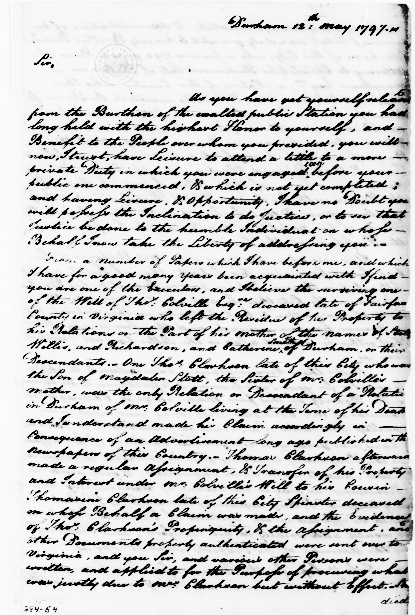 Durham 12th May 1797.
Sir,
As you have got yourself releas
from the Burthen of the exalted public Station you had
long held with the highest Honor to yourself, and
Benefit to the People over whom you presided, you will
now, I trust, have Leisure to attend a little to a more
private Duty in which you were engaged long before your
public one commenced, & which is not yet completed;
and having Leisure, & Opportunity, I have no Doubt you
will possess the Inclination to do Justice, or to see that
Justice be done to the humble Individual on whose
Behalf I now take the Liberty of addressing you.
From a number of Papers which I have before me, and which
I have for a good many Years been acquainted with I find
you are one of the Executors, and I believe the surviving one
of the Will of Thos. Colville Esqr. deceased late of Fairfax
County in Virginia who left the Residue of his Property to
his Relations on the Part of his Mother of the names of Stott
Willis, and Richardson, and Catherine Smith of Durham, or their
Descendants. One Thos. Clarkson late of this City who was
the Son of Magdalen Stott, the Sister of Mr. Colvill's
Mother, was the only Relation or Descendant of a Relation
in Durham of Mr. Colville living at the Time of his Death
and I understand made his Claim accordingly in
Consequence of an Advertisement long ago published in the
Newspapers of this Country. Thomas Clarkson afterwards
made a regular Assignment, & Transfer of his Property
and Interest under Mr. Colville's Will to his Cousin
Thomasin Clarkson late of this City Spinster deceased
in whose Behalf a Claim was made, and the Evidence
of Thos. Clarkson's Propinquity, & the Assignment, and
other Documents properly authenticated were sent over to
Virginia, and you Sir, and various other Persons were
written, and applied to for the Purpose of procuring what
was justly due to Mrs. Clarkson but without Effect.
died
284-54